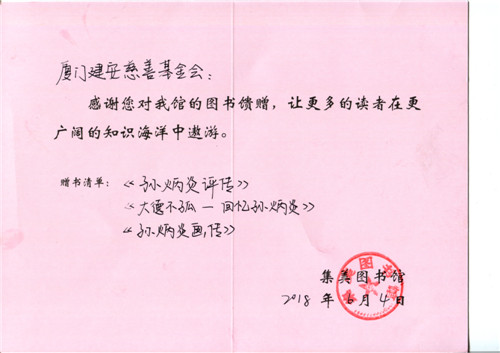 厦门建安慈善基金会：
感谢您对我馆的图书馈赠，让更多的读者在更
广阔的知识海洋中遨游。
赠书清单：《孙炳炎评传》
《大德不孤—回忆孙炳炎》
《孙炳炎画传》
集美图书馆
2018年6月4日